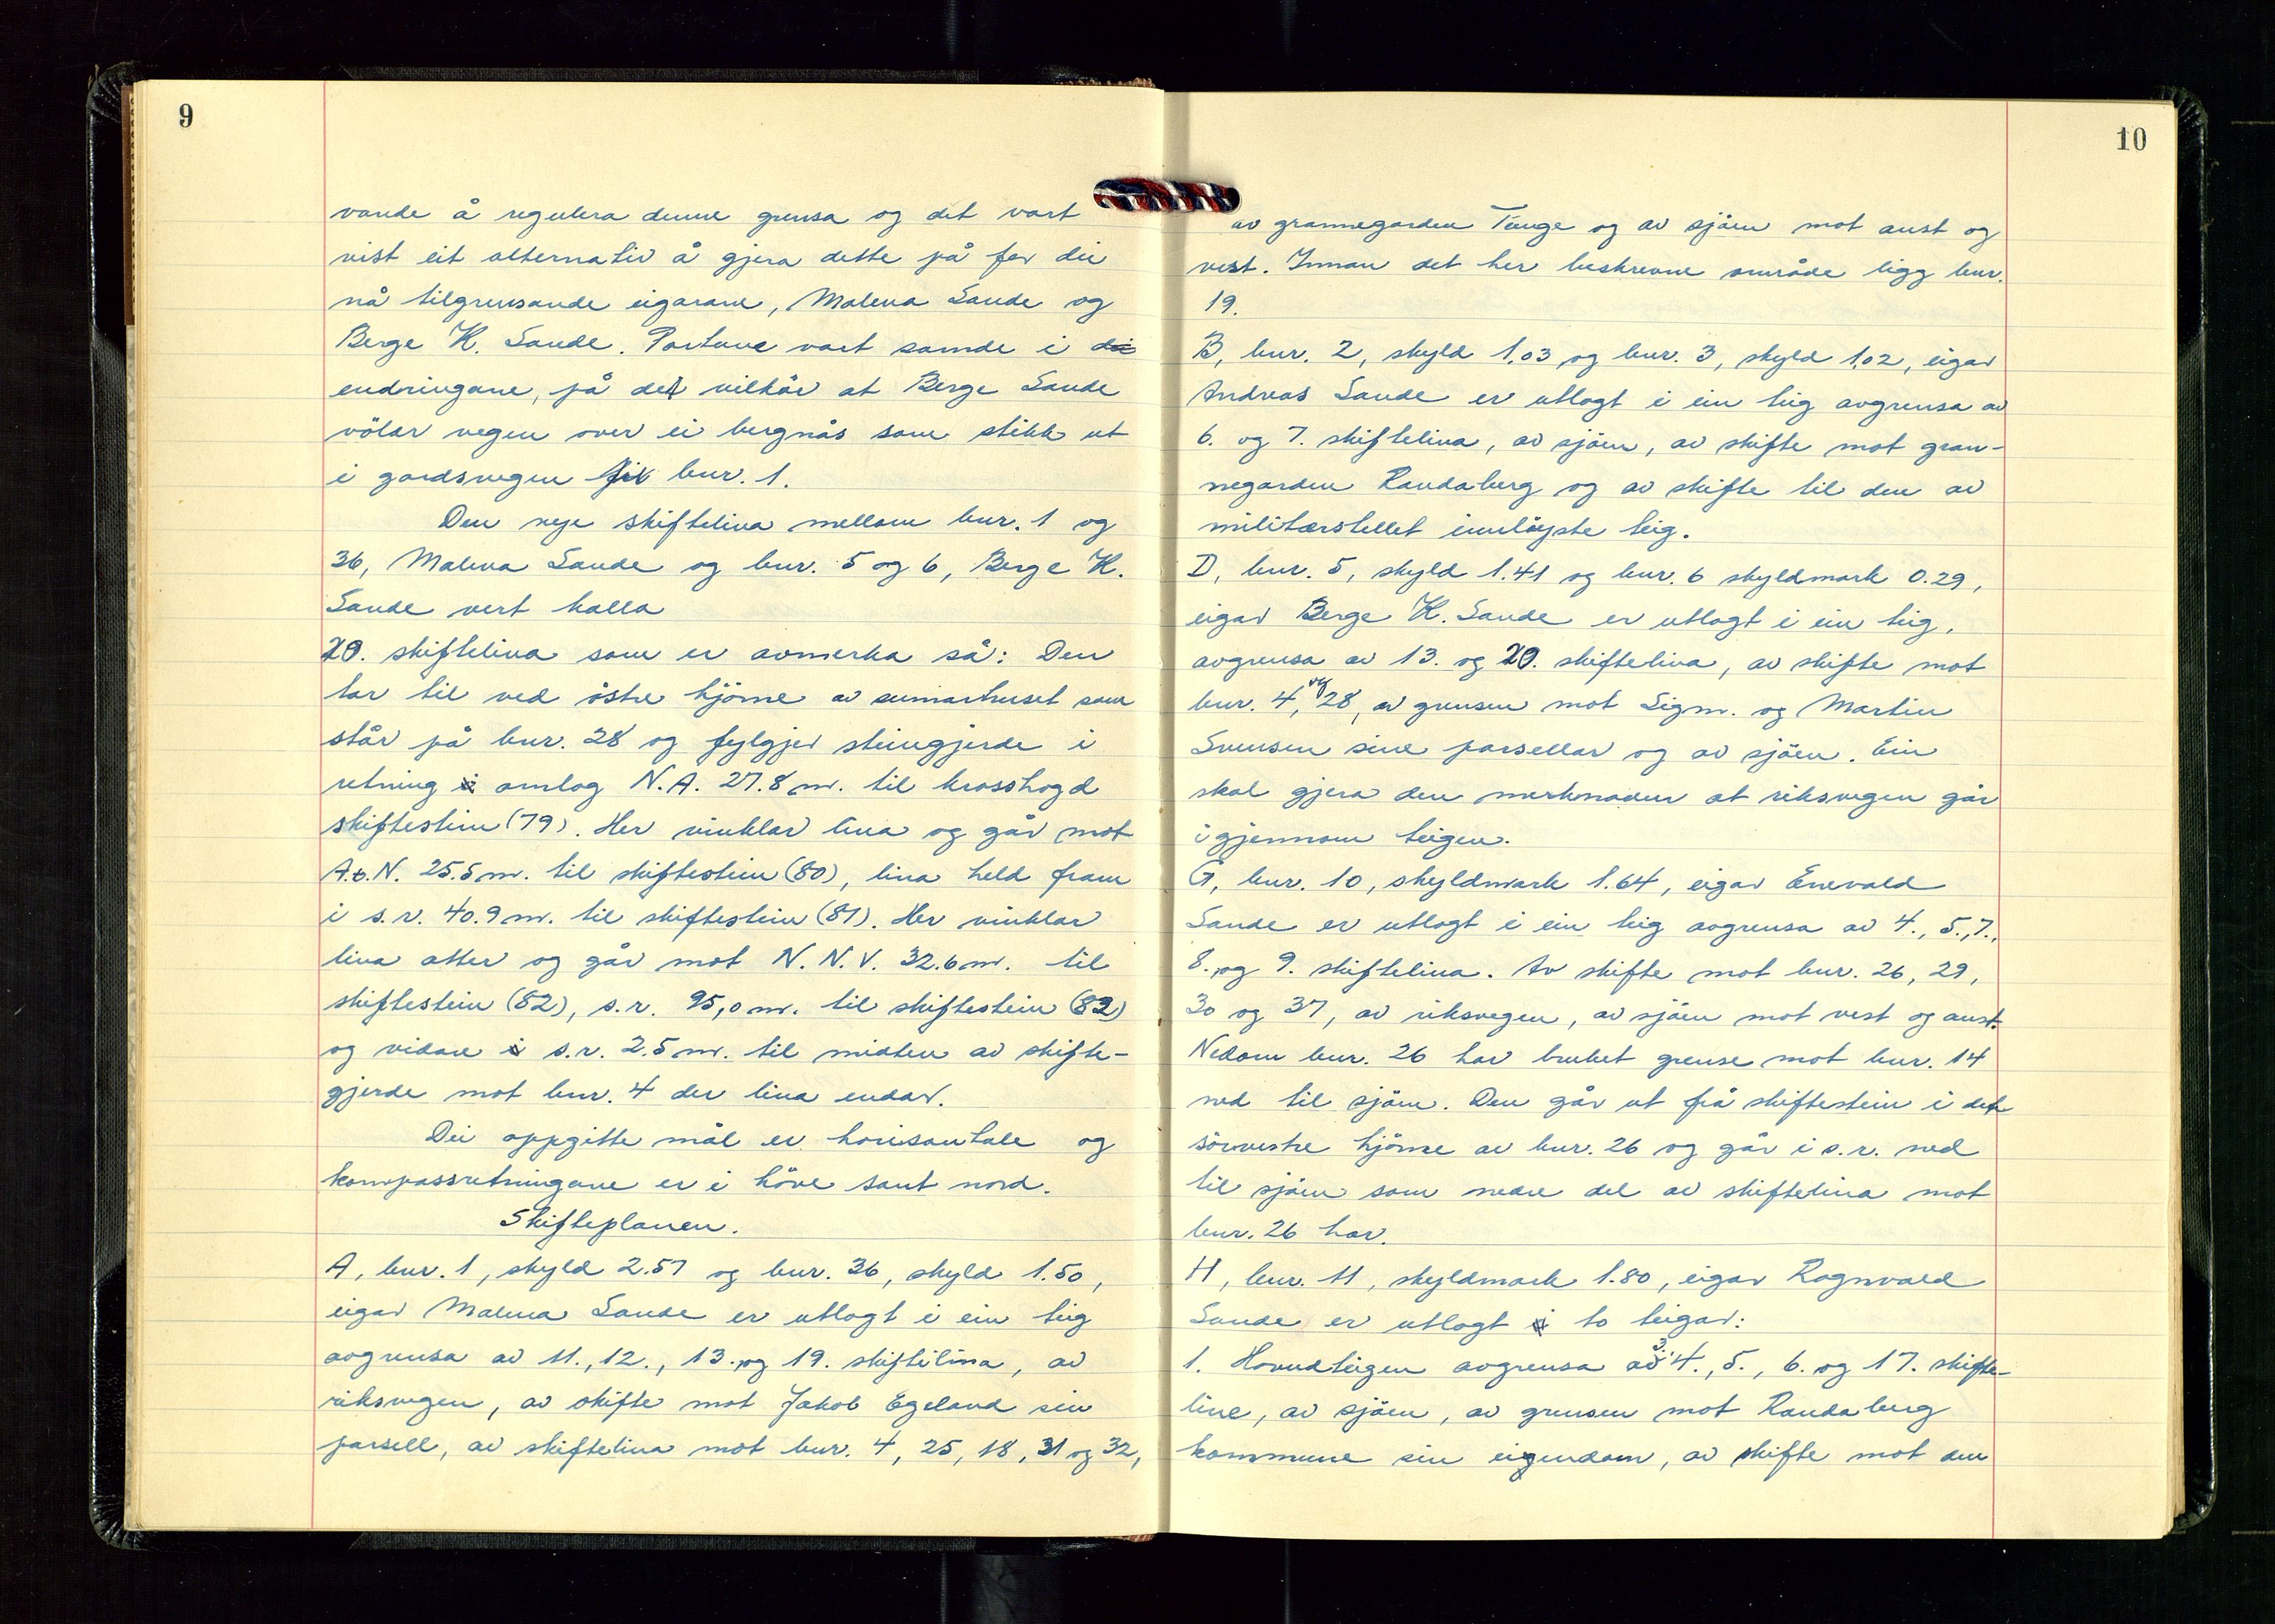 9
vande å regulera denne grensa og det vart
vist eit alternativ å gjera dette på for dei
nå tilgrensande eigarane, Malena Sande og
Berge K. Sande. Partane vart samde i dei
endringane, på det vilkår at Berge Sande
völar vegen over ei bergnås som stikk ut
i gardsvegen til bnr. 1.
Den nye skiftelina mellom bnr. 1 og
36, Malena Sande og bnr. 5 og 6, Berge K.
Sande vert kalla
20. skiftelina som er avmerka så: Den
tar til ved östre hjörne av sumarhuset som
står på bnr. 28 og fylgjer steingjerde i
retning i omlag N.A. 27.8 m. til krosshogd
skiftestein (79). Her vinklar lina og går mot
A.t.N. 25.5 m. til skiftestein (80), lina held fram
i s.r. 40.9 m. til skiftestein (81). Her vinklar
lina atter og går mot N.N.V. 32.6 m. til
skiftestein (82), s.r. 95,0 m. til skiftestein (83)
og vidare i s.r. 2.5 m. til midten av skifte-
gjerde mot bnr. 4 der lina endar.
Dei oppgitte mål er horisontale og
kompassretningane er i höve sant nord.
Skifteplanen.
A, bnr. 1, skyld 2.57 og bnr. 36, skyld 1.50,
eigar Malena Sande er utlagt i ein teig
avgrensa av 11., 12., 13. og 19. skiftelina, av
riksvegen, av skifte mot Jakob Egeland sin
parsell, av skiftelina mot bnr. 4, 25, 18, 31 og 32,
10
av grannegarden Tunge og av sjöen mot aust og
vest. Innan det her beskrevne område ligg bnr.
19.
B, bnr. 2, skyld 1.03 og bnr. 3, skyld 1.02, eigar
Andreas Sande er utlagt i ein teig avgrensa av
6. og 7. skiftelina, av sjöen, av skifte mot gran-
negarden Randaberg og av skifte til den av
militærstellet innlöyste teig.
D, bnr. 5, skyld 1.41 og bnr. 6 skyldmark 0.29,
eigar Berge K. Sande er utlagt i ein teig,
avgrensa av 13. og 20. skiftelina, av skifte mot
bnr. 4, og 28, av grensen mot Sigm. og Martin
Svensen sine parsellar og av sjöen. Ein
skal gjera den merknaden at riksvegen går
igjennom teigen.
G, bnr. 10, skyldmark 1.64, eigar Enevald
Sande er utlagt i ein teig avgrensa av 4., 5., 7.,
8. og 9. skiftelina. Av skifte mot bnr. 26, 29,
30 og 37, av riksvegen, av sjöen mot vest og aust.
Nedom bnr. 26 har bruket grense mot bnr. 14
ned til sjöen. Den går ut frå skiftestein i det
sörvestre hjörne av bnr. 26 og går i s.r. ned
til sjöen som nedre del av skiftelina mot
bnr. 26 har.
H, bnr. 11, skyldmark 1.80, eigar Ragnvald
Sande er utlagt i to teigar:
1. Hovudteigen avgrensa av 3. 4., 5., 6. og 17. skifte-
line, av sjöen, av grensen mot Randaberg
kommune sin eigendom, av skifte mot den